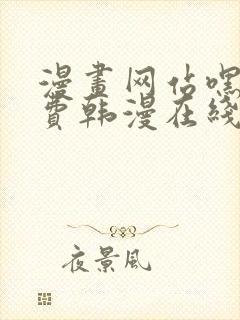 漫畫网站嘿
費韩漫在綫
夜景風